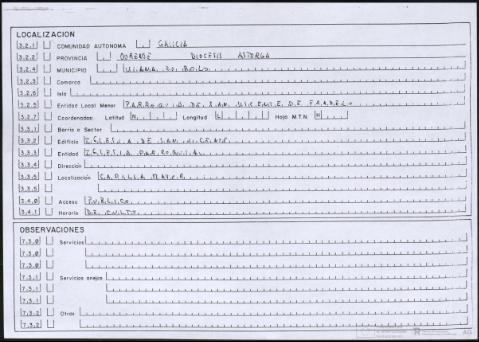 LOCALIZACION
3.2.1 COMUNIDAD AUTONOMA GALICIA
3.2.2 PROVINCIA OURENSE DIOCESIS ASTORGA
3.2.4 MUNICIPIO
3.2.3 Comarca
Isla
Entidad Local Menor PARROQUIA DE SAN VICENTE DE
3.2.7 Coordenadas: Latitud N Longitud Hoja M.T.N.
3.3.1 Barrio o Sector
3.3.2 Edificio IGLESIA DE SAN VICENTE
3.3.3 Entidad IGLESIA PARROQUIAL
3.3.4 Dirección
3.3.5 Localización CAPILLA MAYOR
3.3.5
3.4.0 Acceso PUBLICO
3.4.1 Horario DE CULTO
OBSERVACIONES
7.3.0 Servicios
7.3.0
7.3.0
7.3.1 Servicios anejos
7.3.1
7.3.1
7.3.2 Otros
7.3.2